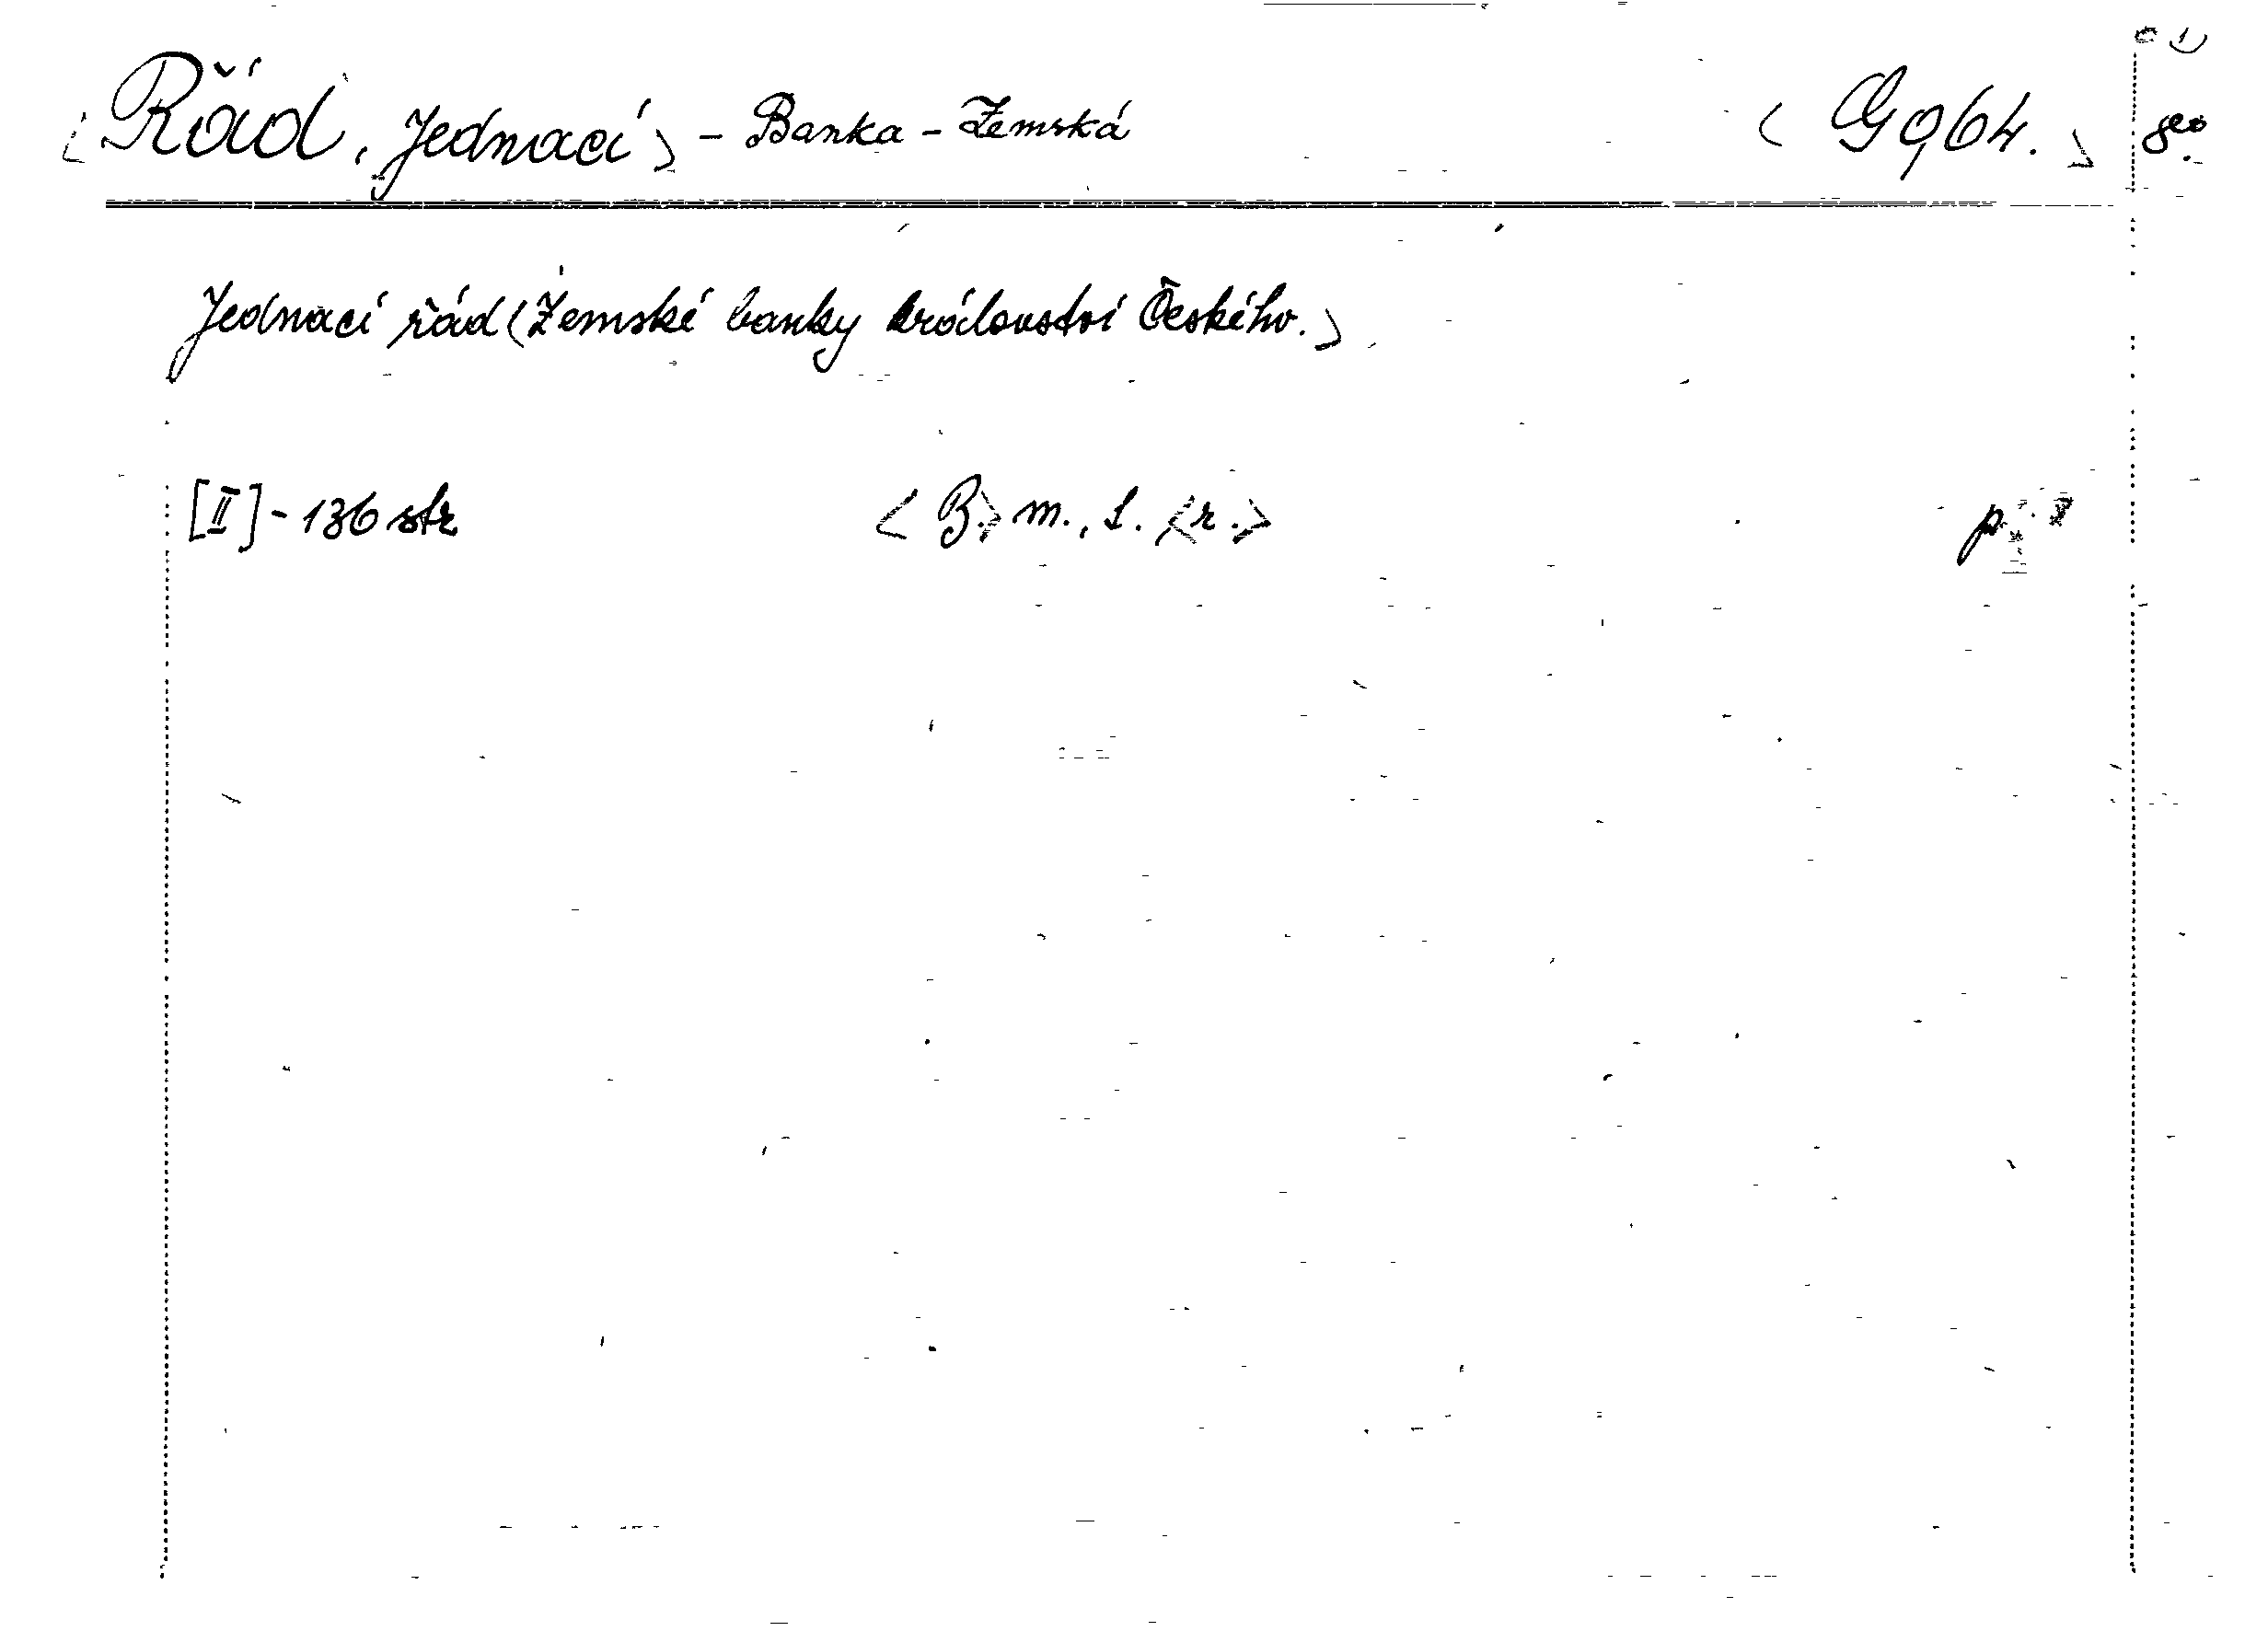 <Řád, Jednací> - Banka - Zemská <G 964.> 8°.
Jednací řád (Zemské banky království Českého.)
[II] - 136 str <B.> m., l. <r.>